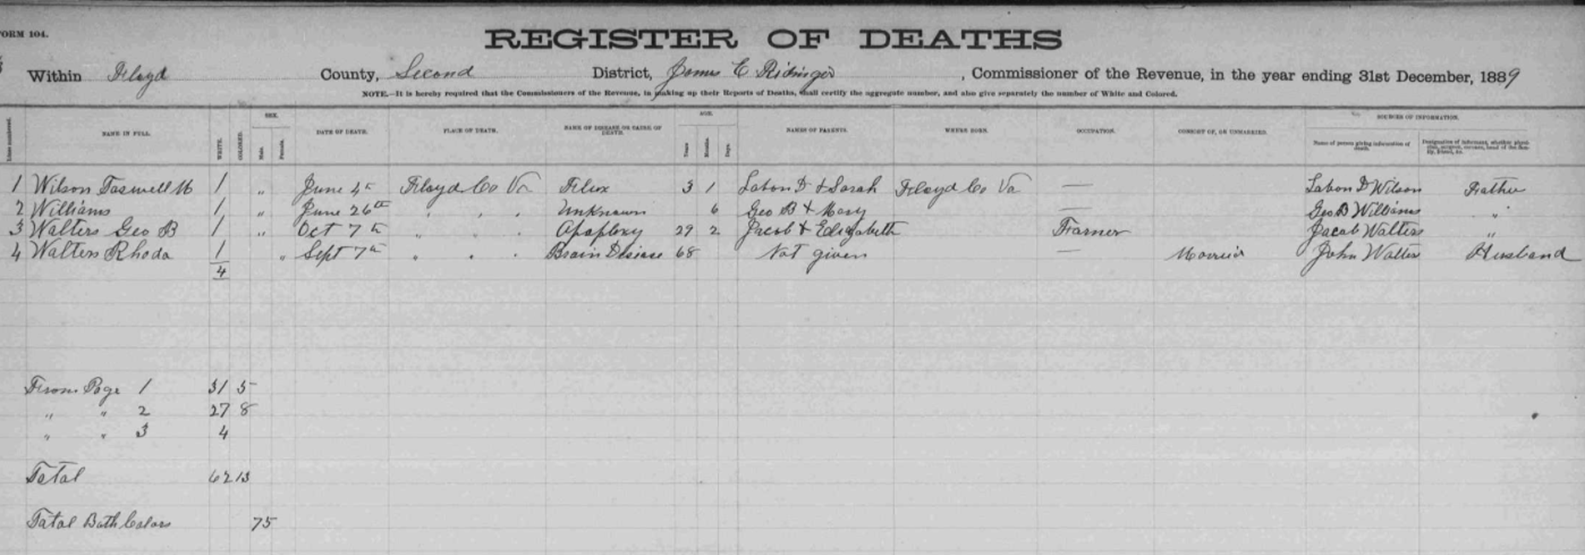 FORM 104.
REGISTER OF DEATHS
Within Floyd County, Second District, James E Ridinger, Commissioner of the Revenue, in the year ending 31st December, 1889
NOTE.—It is hereby required that the Commissioners of the Revenue, in making up their Reports of Deaths, shall certify the aggregate number, and also give separately the number of White and Colored.
SEX. AGE. SOURCES OF INFORMATION.
Lines numbered. NAME IN FULL. WHITE. COLORED. Male. Female. DATE OF DEATH. PLACE OF DEATH. NAME OF DISEASE OR CAUSE OF DEATH. Years Months Days. NAMES OF PARENTS. WHERE BORN. OCCUPATION. CONSORT OF, OR UNMARRIED. Name of person giving information of death. Designation of informant, whether physician, surgeon, coroner, head of the family, friend, &c.
1 Wilson Taswell M 1 " June 4th Floyd Co Va Flux 3 1 Labon D & Sarah Floyd Co Va — Labon D Wilson Father
2 Williams 1 " June 26th " " " Unknown 6 Geo B & Mary — Geo B Williams "
3 Walters Geo B 1 " Oct 7th " " " Apoplexy 29 2 Jacob & Elizabeth Farmer Jacob Walters "
4 Walters Rhoda 1 " Sept 7th " " " Brain Disease 68 Not given — Married John Walters Husband
4
From Page 1 31 5
" " 2 27 8
" " 3 4
Total 62 13
Total Both Colors 75